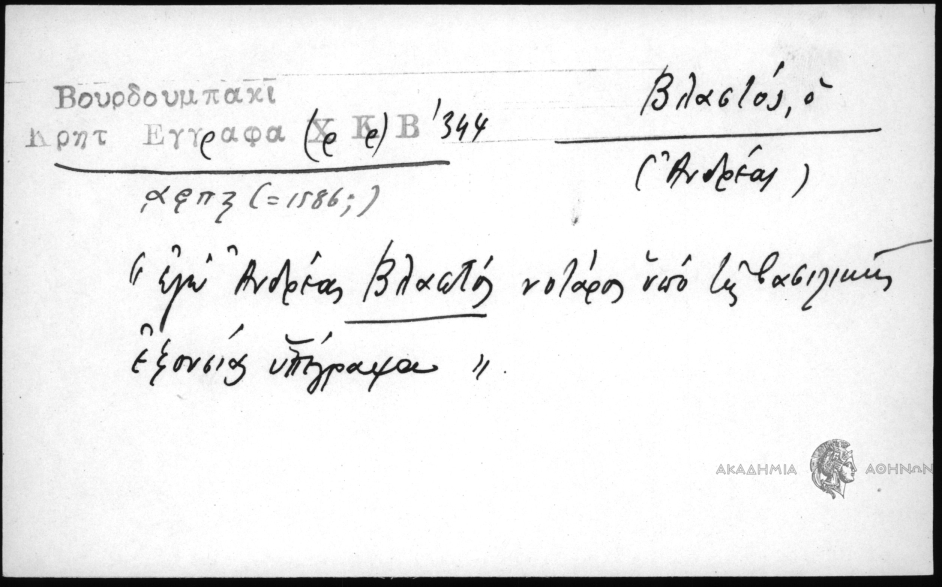 Βουρδουμπακι
Κρητ Εγγραφα Χ Κ Β '344
(ρ ρ)
Βλαστός, ὁ
(Ἀνδρέας)
αφπξ (=1586;)
"ἐγὼ Ἀνδρέας Βλαστός νοτάρος ὑπό τῆς βασιλικῆς
ἐξουσίας ὑπέγραψα".
ΑΚΑΔΗΜΙΑ ΑΘΗΝΩΝ